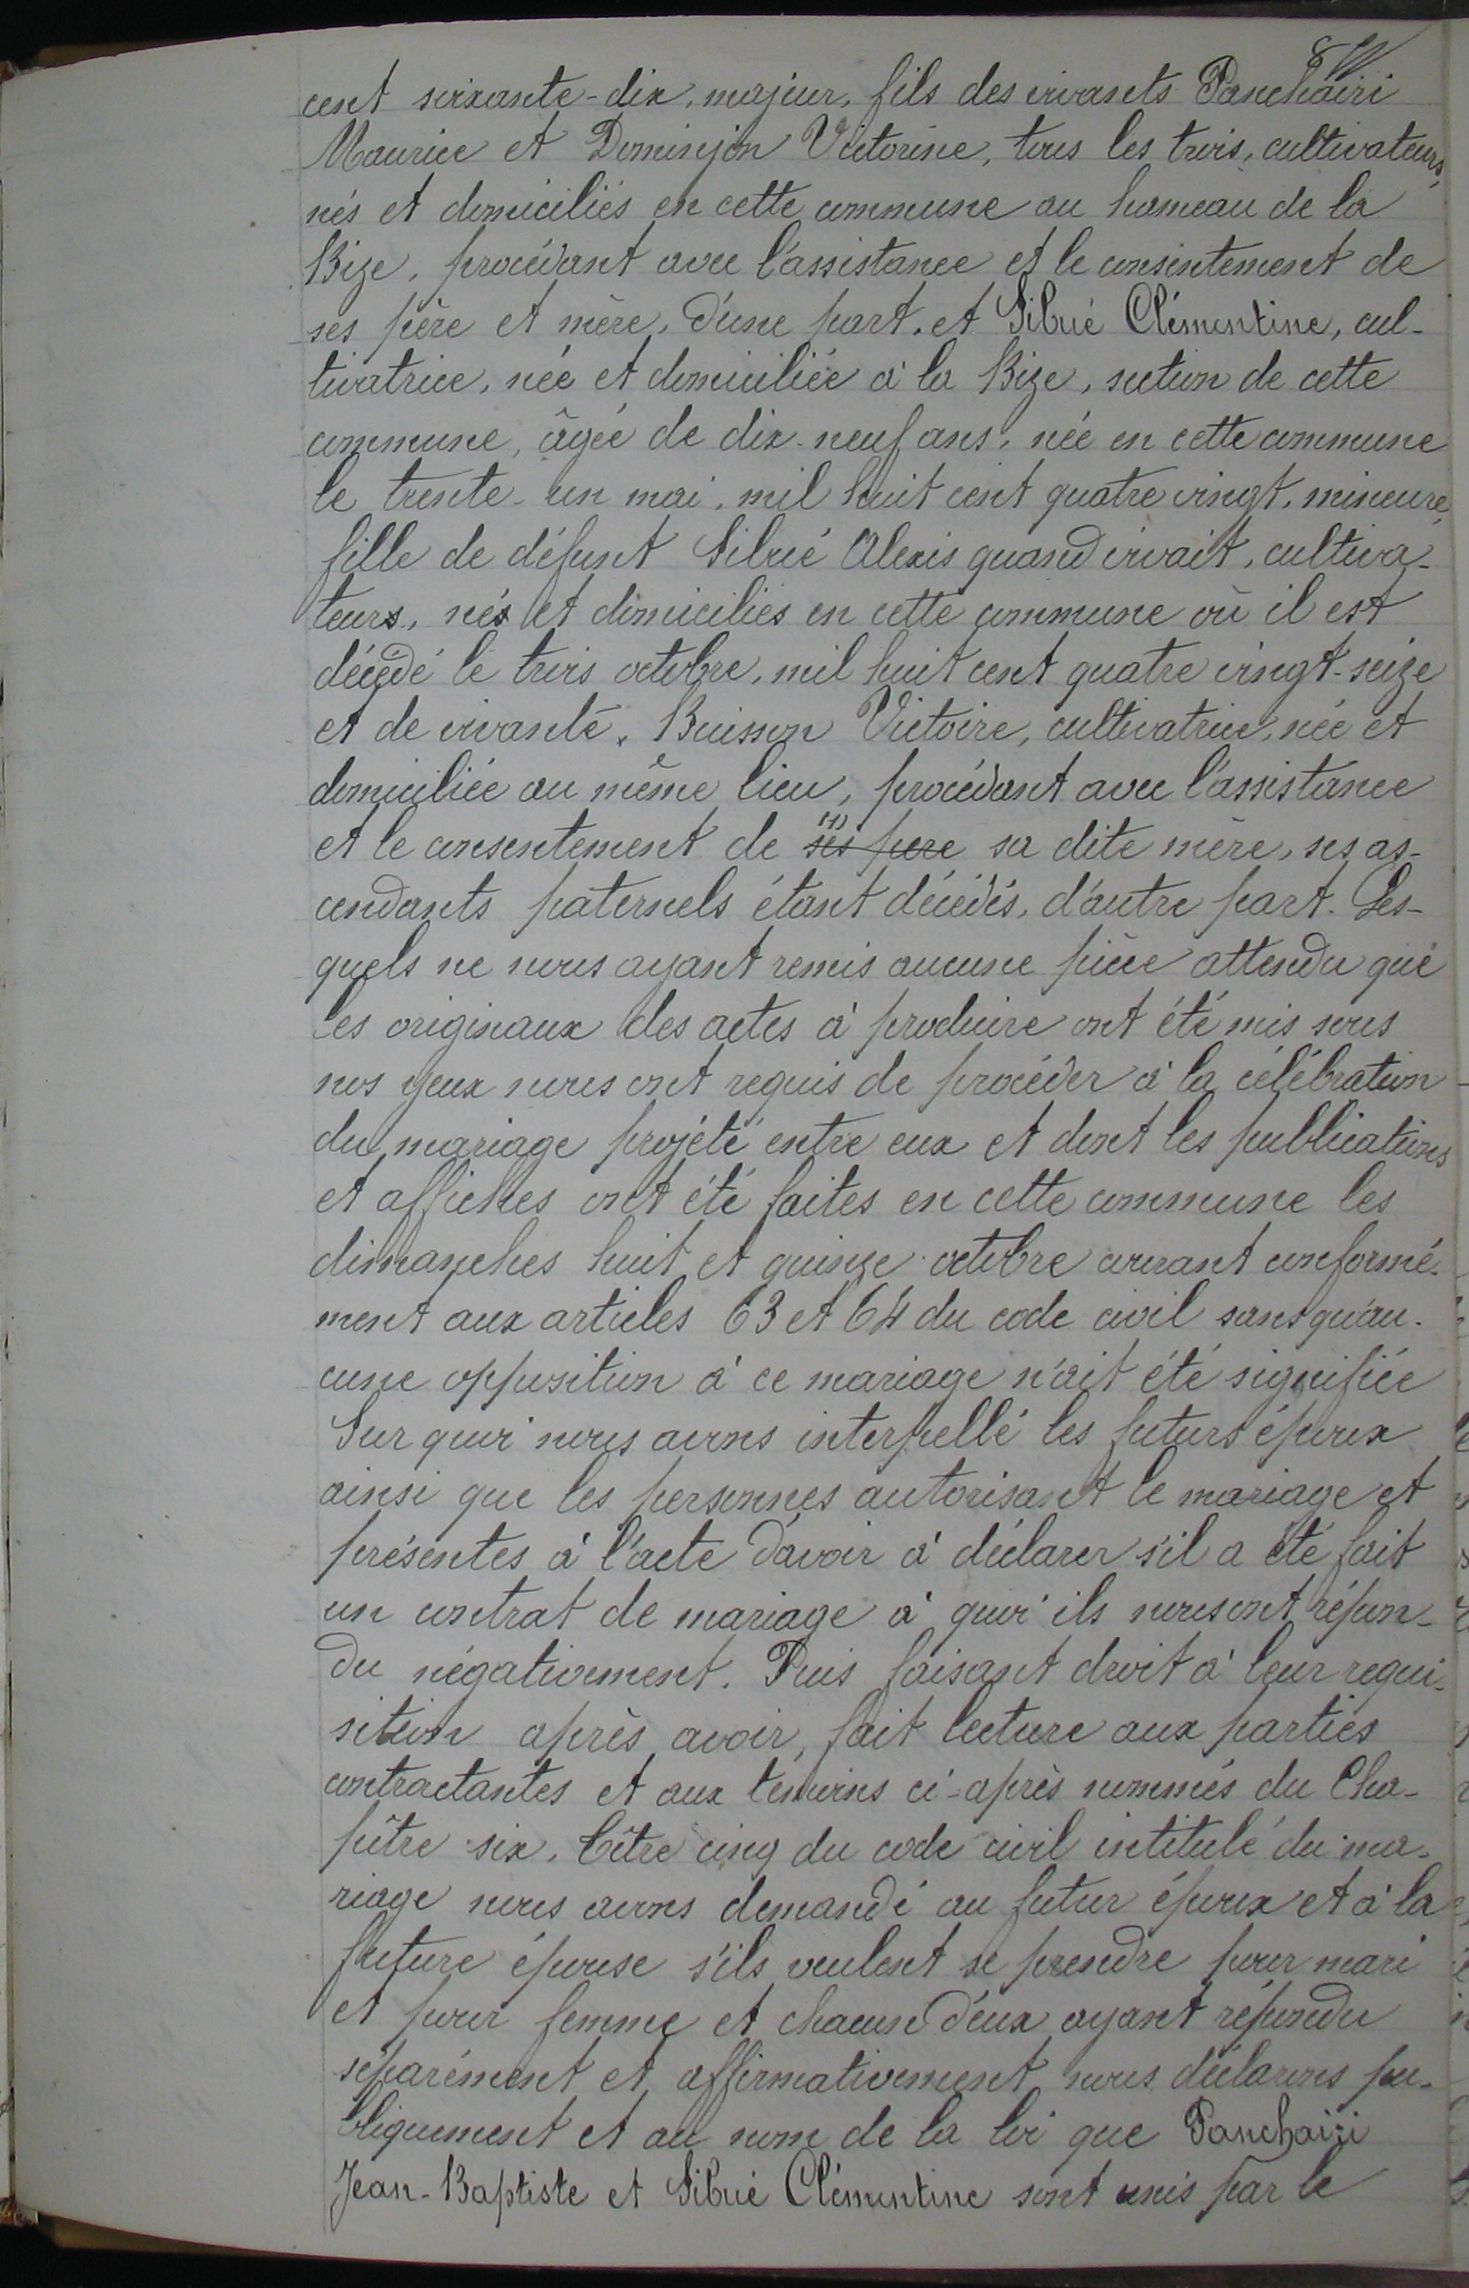 cent soixante-dix, majeur, fils des vivants Panchairi
Maurice et Dominjon Victorine, tous les trois, cultivateurs,
nés et domiciliés en cette commune au hameau de la
Bize, procédant avec l'assistance et le consentement de
ses père et mère, d'une part, et Sibué Clémentine, cul-
tivatrice, née et domiciliée à la Bize, section de cette
commune, âgée de dix-neuf ans, née en cette commune
le trente-un mai, mil huit cent quatre vingt, mineure,
fille de défunt Sibué Alexis quand vivait, cultiva-
teurs, nés et domiciliés en cette commune où il est
décédé le trois octobre, mil huit cent quatre vingt-seize
et de vivante, Buisson Victoire, cultivatrice, née et
domiciliée au même lieu, procédant avec l'assistance
et le consentement de ses pere (1) sa dite mère, ses as-
cendants paternels étant décédés, d'autre part. Les-
quels ne nous ayant remis aucune pièce attendu que
les originaux des actes à produire ont été mis sous
nos yeux nous ont requis de procéder à la célébration
du mariage projété entre eux et dont les publications
et affiches ont été faites en cette commune les
dimanches huit et quinze octobre courant conformé-
ment aux articles 63 et 64 du code civil sans qu'au-
cune opposition à ce mariage n'ait été signifiée
Sur quoi nous avons interpellé les futurs époux
ainsi que les personnes autorisant le mariage et
présentes à l'acte d'avoir à déclarer s'il a été fait
un contrat de mariage à quoi ils nous ont répon-
du négativement. Puis faisant droit à leur requi-
sition après avoir, fait lecture aux parties
contractantes et aux témoins ci-après nommés du Cha-
pître six, titre cinq du code civil intitulé du ma-
riage nous avons demandé au futur époux et à la
future épouse s'ils veulent se prendre pour mari
et pour femme et chacun d'eux ayant répondu
séparément et affirmativement nous déclarons pu-
bliquement et au nom de la loi que Panchairi
Jean-Baptiste et Sibué Clémentine sont unis par le